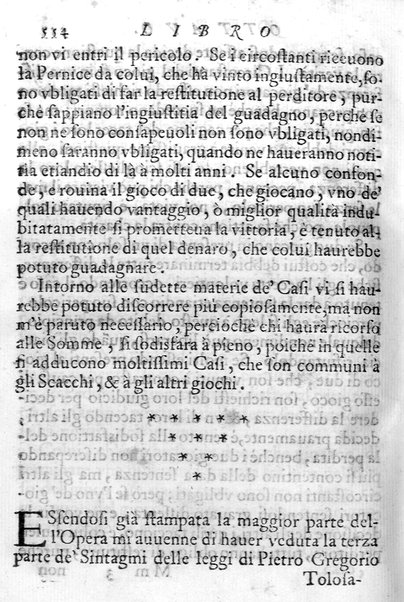 334 LIBRO
non vi entri il pericolo. Se i circostanti riceuono
la Pernice da colui, che ha vinto ingiustamente, so-
no vbligati di far la restitutione al perditore, pur-
che sappiano l'ingiustitia del guadagno, perche se
non ne sono consapeuoli non sono vbligati, nondi-
meno saranno vbligati, quando ne haueranno noti-
tia etiandio di là a molti anni. Se alcuno confon-
de, e rouina il gioco di due, che giocano, vno de'
quali hauendo vantaggio, ò miglior qualità indu-
bitatamente si prometteua la vittoria, è tenuto al-
la restitutione di quel denaro, che colui haurebbe
potuto guadagnare.
Intorno alle sudette materie de' Casi vi si hau-
rebbe potuto discorrere più copiosamente, ma non
m'è paruto necessario, percioche chi haurà ricorso
alle Somme, si sodisfarà à pieno, poiche in quelle
si adducono moltissimi Casi, che son communi à
gli Scacchi, & à gli altri giochi.
* * * * * * *
* * * * *
* * *
*
ESsendosi già stampata la maggior parte del-
l'Opera mi auuenne di hauer veduta la terza
parte de' Sintagmi delle leggi di Pietro Gregorio
Tolosa-